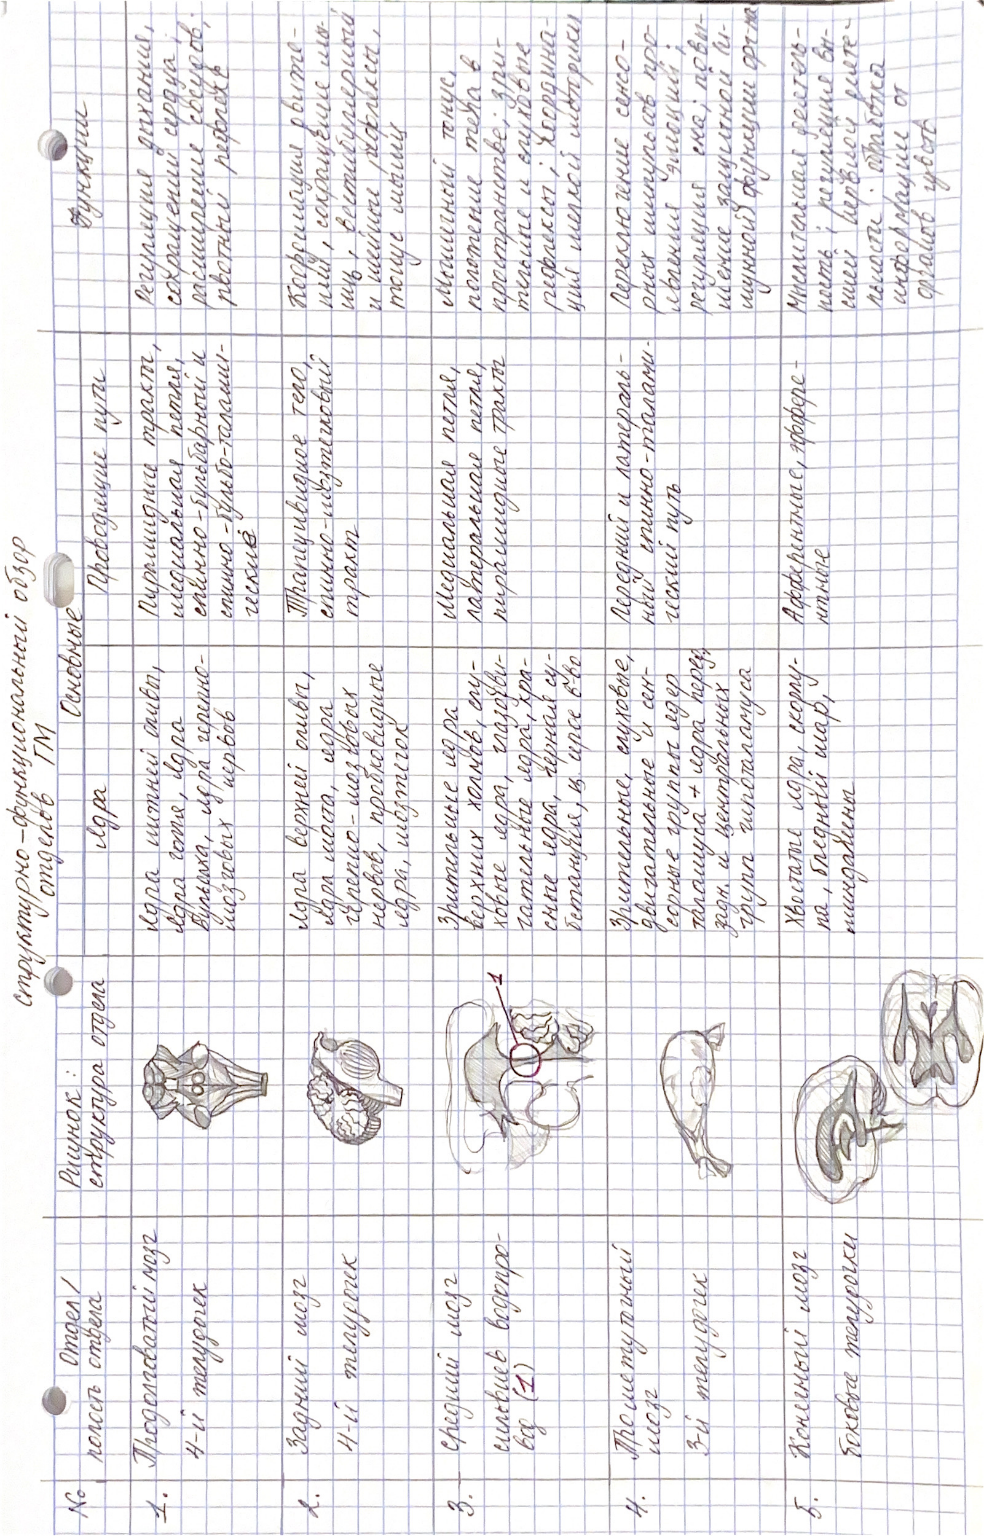 структурно-функциональный обзор
отделов ГМ
№
Отдел/
полость отдела
Рисунок:
структура отдела
Основные
Ядра
Проводящие пути
Функции
1.
Продолговатый мозг
4-й желудочек
Ядра нижней оливы,
ядра голя, ядра
бульбка, ядра черепно-
мозговых нервов
Пирамидные тракты,
медиальная петля,
спинно-бульбарный и
спинно-бульбо-талами-
ческий
Регуляция дыхания,
сокращений сердца;
расширение сосудов;
рвотный рефлекс
2.
Задний мозг
4-й желудочек
Ядра верхней оливы,
ядра моста, ядра
черепно-мозговых
нервов, пробковидные
ядра, мозжечок
Трапециевидное тело,
спинно-мозжечковый
тракт
Координация
сокращение мы-
шц; вестибулярный
и шейные рефлексы,
тонус мышц
3.
Средний мозг
сильвиев водопро-
вод (1)
1
Зрительные ядра
верхних холмов, слу-
ховые ядра, глазодви-
гательные ядра, кра-
сные ядра, черная су-
бстанция, ц. серое в-во
Медиальная петля,
латеральная петля,
пирамидные тракты
Мышечный тонус,
положение тела в
пространстве; зри-
тельные и слуховые
рефлексы; координа-
ция мелкой моторики
4.
Промежуточный
мозг
3-й желудочек
Зрительные, слуховые,
двигательные и сен-
сорные группы ядер
таламуса + ядра перед,
задн. и центральных
групп гипоталамуса
Передний и латераль-
ный спинно-талами-
ческий путь
Переключение сенсо-
рных импульсов про-
явления эмоций;
регуляция сна; повы-
шение защитной и-
ммунной функции орг-ма
5.
Конечный мозг
боковые желудочки
Хвостате ядра, скорлу-
па, бледный шар,
миндалины
Афферентные, эффере-
нтные
Мыслительная деятель-
ность; регуляция вы-
сшей нервной деяте-
льности; обработка
информации от
органов чувств